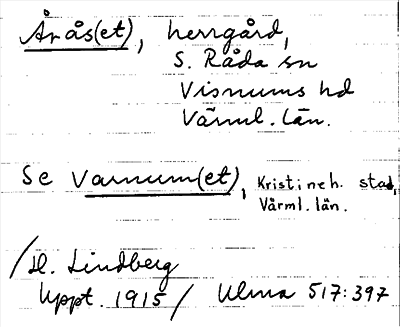 Årås(et), herrgård,
S. Råda sn
Visnums hd
Värml. län.
Se Varnum(et), Kristineh. stad,
Värml. län.
/H. Lindberg
Uppt. 1915/ Ulma 517:397